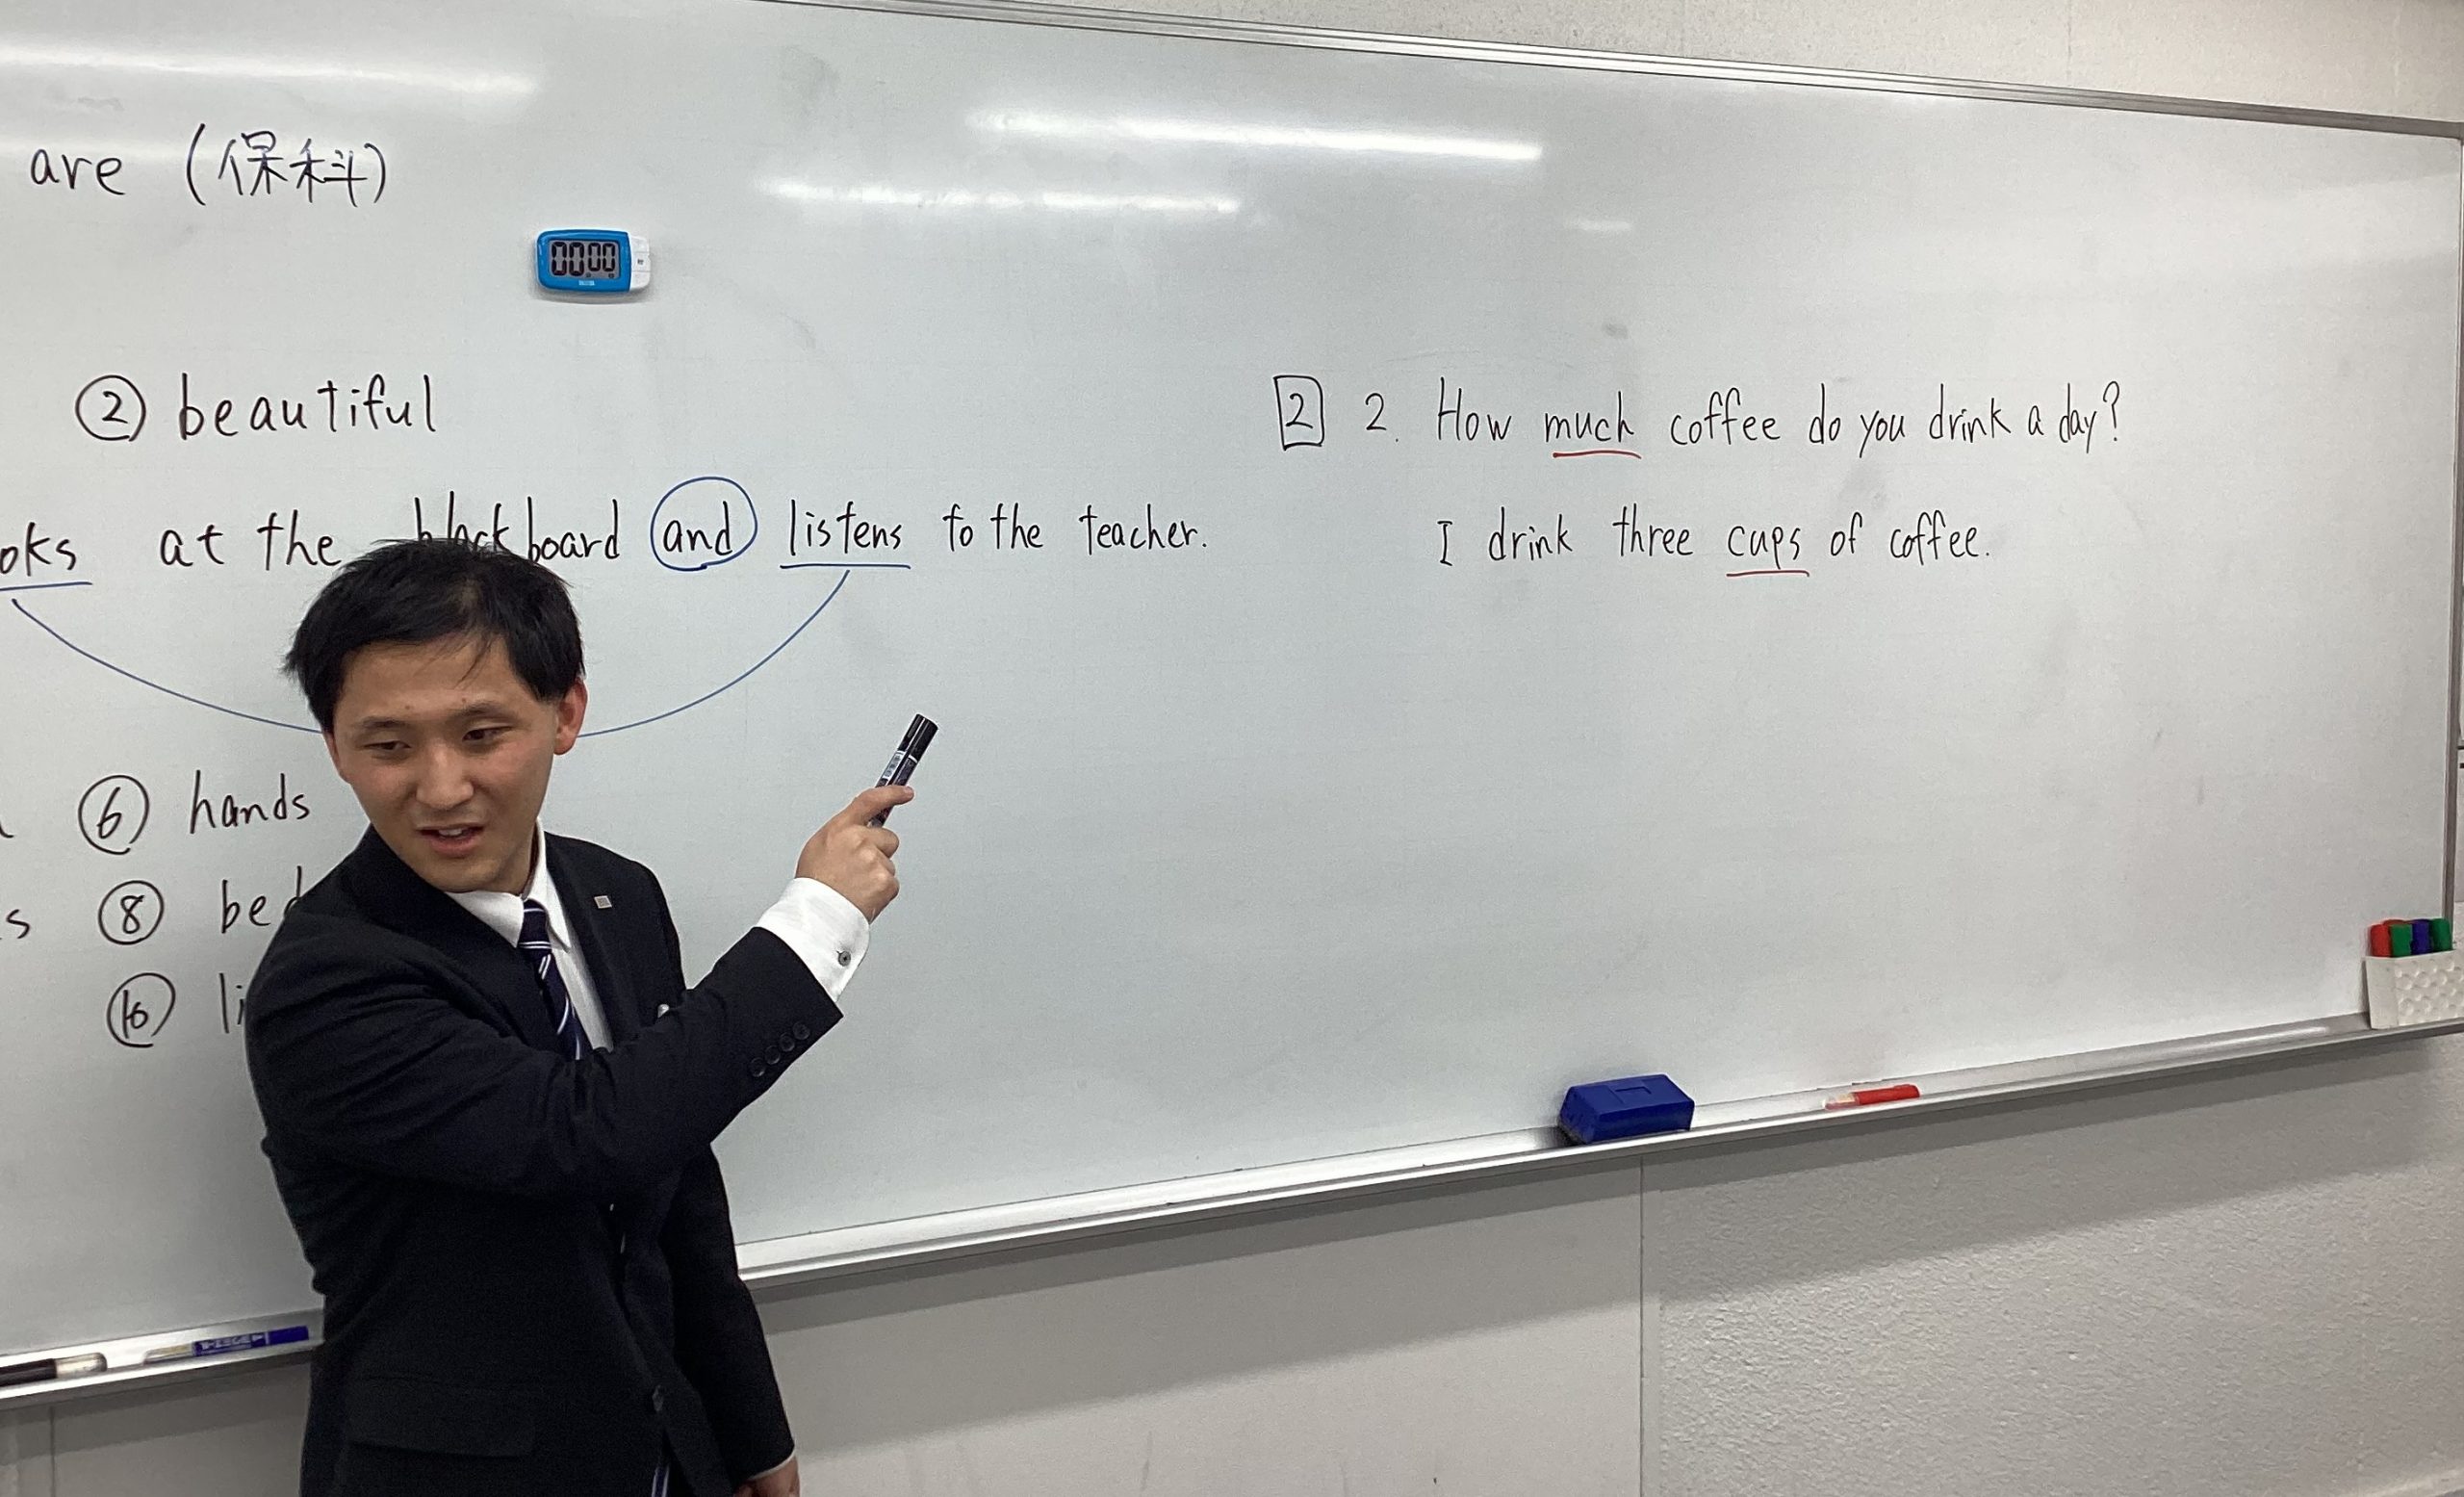 are (保科)
00:00
② beautiful
oks at the blackboard and listens to the teacher.
⑥ hands
s ⑧ bed
⑩ li
2 2. How much coffee do you drink a day?
I drink three cups of coffee.